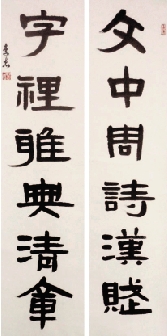 文中周詩漢賦
字裡雅典清章